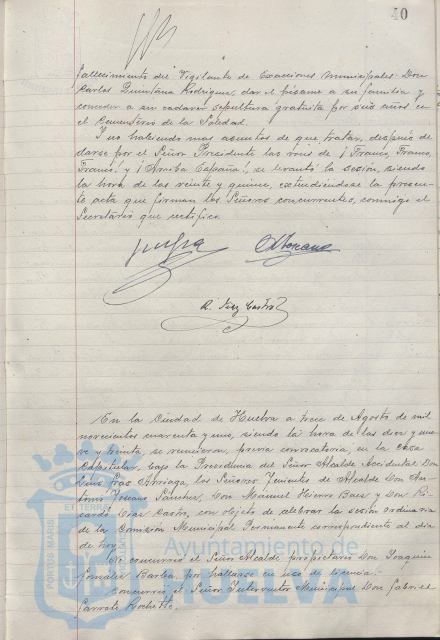 40
fallecimiento del Vigilante de Exacciones Municipales Don
Carlos Quintana Rodriguez, dar el pésame a su familia y
conceder a su cadaver sepultura gratuita por seis años en
el Cementerio de la Soledad.
Y no habiendo mas asuntos de que tratar, después de
darse por el Señor Presidente las voces de ¡Franco, Franco,
Franco! y ¡Arriba España!, se levantó la sesión, siendo
la hora de las veinte y quince, extendiéndose la presen-
te acta que firman los Señores concurrentes, conmigo el
Secretario que certifico.
En la Ciudad de Huelva a trece de Agosto de mil
novecientos cuarenta y uno, siendo la hora de las diez y nue-
ve y treinta, se reunieron, previa convocatoria, en la Casa
Capitular, bajo la Presidencia del Señor Alcalde Accidental Don
los Señores Tenientes de Alcalde Don An-
tonio Sánchez, Don Manuel Hierro Baez y Don Ri-
cardo Castro, con objeto de celebrar la sesión ordinaria
de la Comisión Municipal Permanente correspondiente al dia
de hoy.
No concurrió el Señor Alcalde propietario Don Joaquin
González Barba, por hallarse en uso de licencia.
Concurrió el Señor Interventor Municipal Don Gabriel
Garrote
PORTUS MARIS
ET TERRAE
Ayuntamiento de
HUELVA